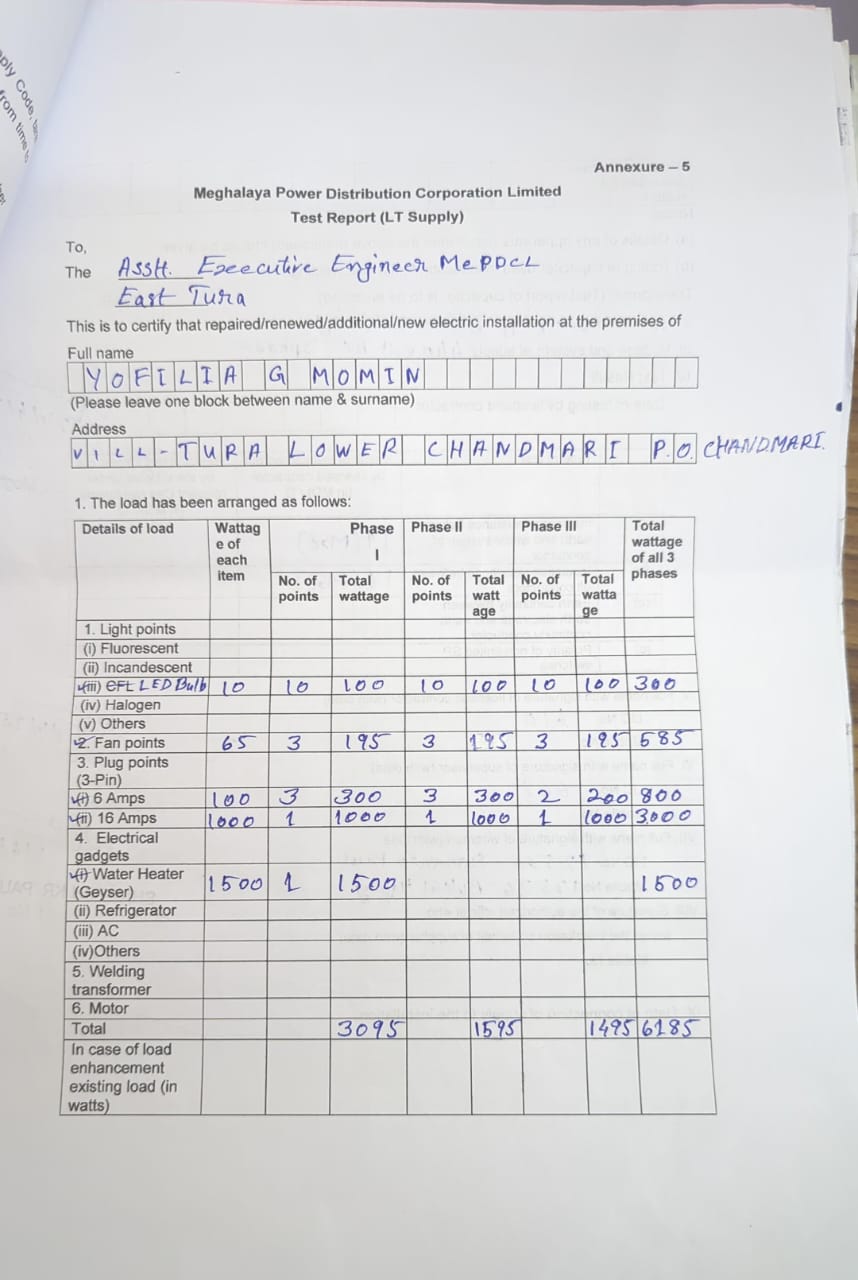 ply Code,
from time to
Annexure – 5
Meghalaya Power Distribution Corporation Limited
Test Report (LT Supply)
To,
The Asstt. Executive Engineer MePDCL
East Tura
This is to certify that repaired/renewed/additional/new electric installation at the premises of
Full name
YOFILIA G MOMIN
(Please leave one block between name & surname)
Address
VILL-TURA LOWER CHANDMARI P.O. CHANDMARI.
1. The load has been arranged as follows:
Details of load Wattag e of each item Phase I Phase II Phase III Total wattage of all 3 phases
No. of points Total wattage No. of points Total watt age No. of points Total watta ge
1. Light points
(i) Fluorescent
(ii) Incandescent
(iii) CFL LED Bulb 10 10 100 10 100 10 100 300
(iv) Halogen
(v) Others
2. Fan points 65 3 195 3 195 3 195 585
3. Plug points (3-Pin)
(i) 6 Amps 100 3 300 3 300 2 200 800
(ii) 16 Amps 1000 1 1000 1 1000 1 1000 3000
4. Electrical gadgets
(i) Water Heater (Geyser) 1500 1 1500 1500
(ii) Refrigerator
(iii) AC
(iv)Others
5. Welding transformer
6. Motor
Total 3095 1595 1495 6185
In case of load enhancement existing load (in watts)